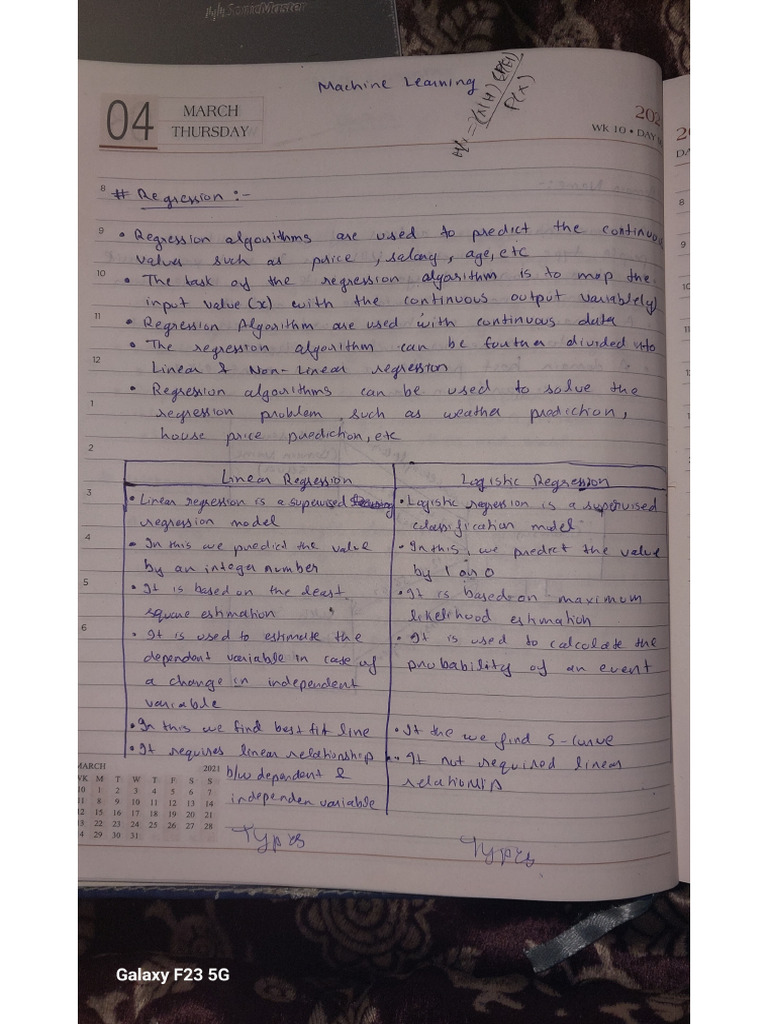 SoundMonster
Machine Learning
04
MARCH
THURSDAY
202
WK 10 • DAY
P(X)
# Regression :-
• Regression algorithms are used to predict the continuous
values such as price, salary, age, etc
• The task of the regression algorithm is to map the
input value (x) with the continuous output variable(y)
• Regression Algorithm are used with continuous data
• The regression algorithm can be further divided into
Linear & Non-Linear regression
• Regression algorithms can be used to solve the
regression problem such as weather prediction,
house price prediction, etc
8
9
10
11
12
1
2
3
4
5
6
Linear Regression
• Linear regression is a supervised
regression model
• In this we predict the value
by an integer number
• It is based on the least
square estimation
• It is used to estimate the
dependent variable in case of
a change in independent
variable
• In this we find best fit line
• It requires linear relationship
b/w dependent &
independen variable
Types
Logistic Regression
• Logistic regression is a supervised
classification model
• In this, we predict the value
by 1 or 0
• It is based on maximum
likelihood estimation
• It is used to calculate the
probability of an event
• It the we find S-curve
• It not required linear
relationship
Types
MARCH 2021
WK M T W T F S S
10 1 2 3 4 5 6 7
11 8 9 10 11 12 13 14
12 15 16 17 18 19 20 21
13 22 23 24 25 26 27 28
14 29 30 31
Galaxy F23 5G